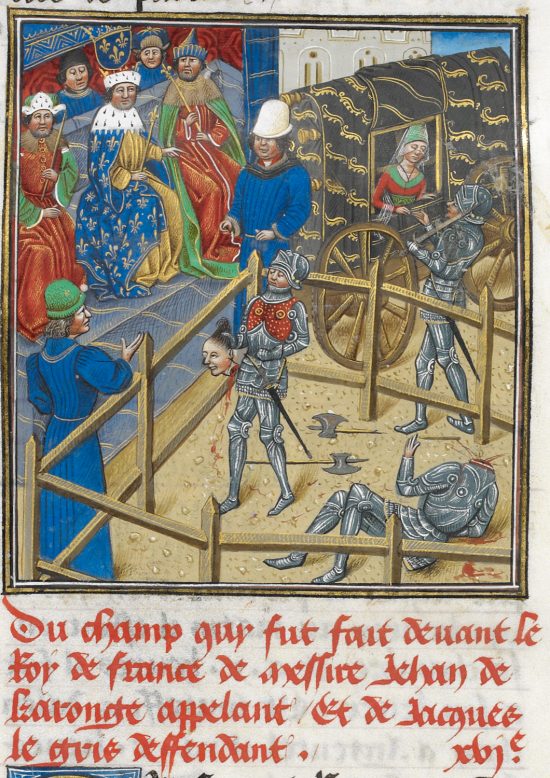 Du champ quy fut fait devant le
Roy de france de messire Jehan de
karonge appelant / Et de Jacques
le gris deffendant . xvje